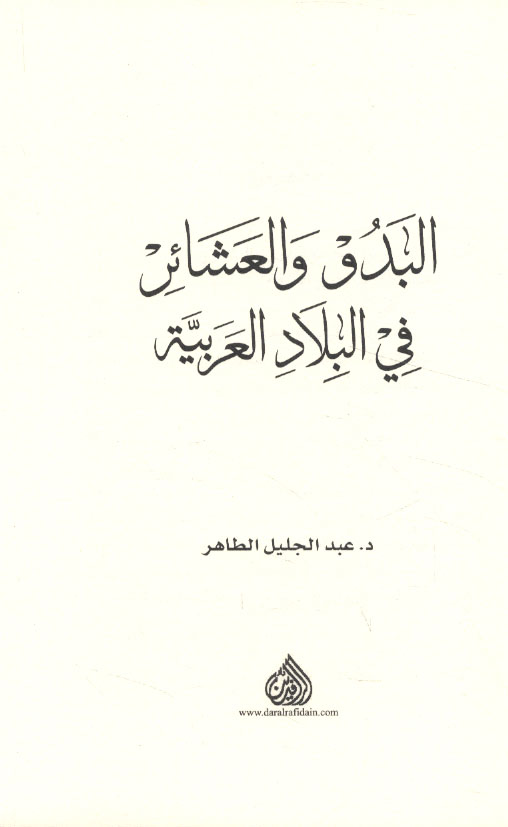 البَدُوْ وَالعَشَائِرْ
فِيْ البِلَادِ العَرَبيَّة
د. عبد الجليل الطاهر
الرافدين
www.daralrafidain.com